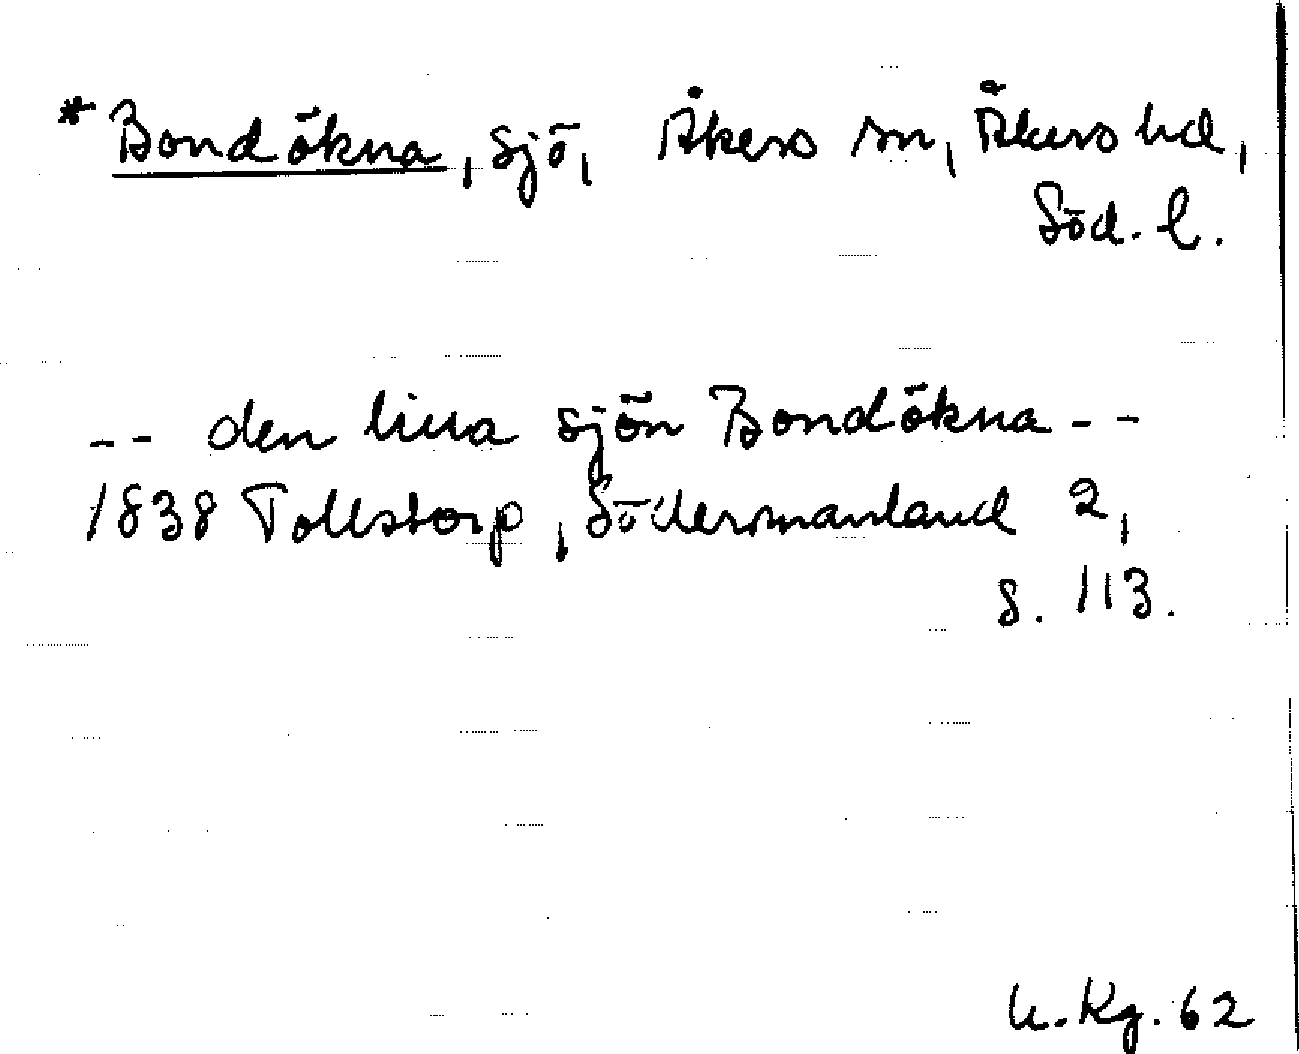 *Bondökna, sjö, Åkers sn, Åkers hd,
Söd. l.
-- den lilla sjön Bondökna --
1838 Tollstorp, Södermanland 2,
s. 113.
U. Kg. 62